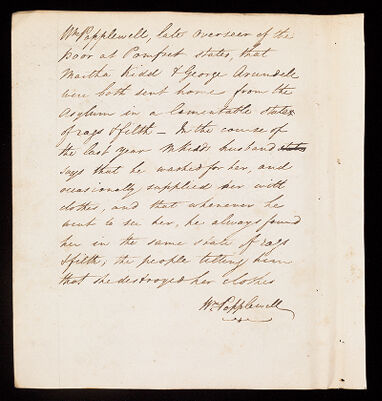 Wm Popplewell, late overseer of the
poor at Pomfret states, that
Martha Kidd & George Arundele
were both sent home from the
Asylum in a lamentable state
of rags & filth – In the course of
the last year M Kidd's husband
says that he washed for her, and
occasionally supplied her with
clothes, and that whenever he
went to see her, he always found
her in the same state of rags
& filth, the people telling him
that she destroyed her clothes
Wm Popplewell